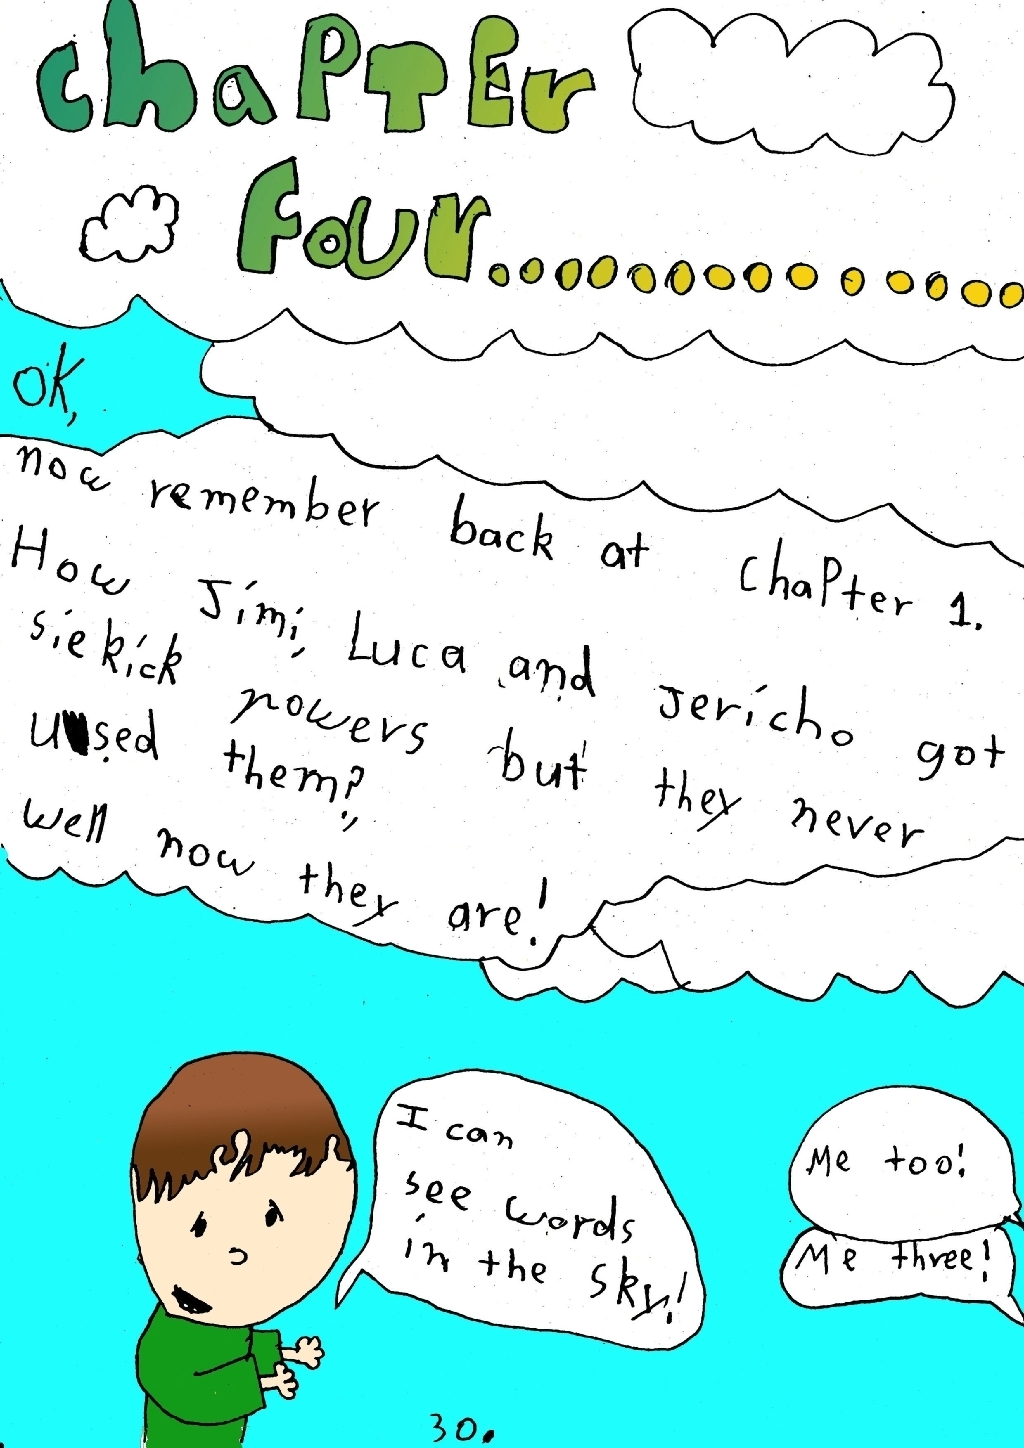 Chapter
Four..............
OK,
now remember back at Chapter 1.
How Jimi, Luca and Jericho got
siekick powers but they never
used them?
well now they are!
I can
see words
in the sky!
Me too!
Me three!
30.